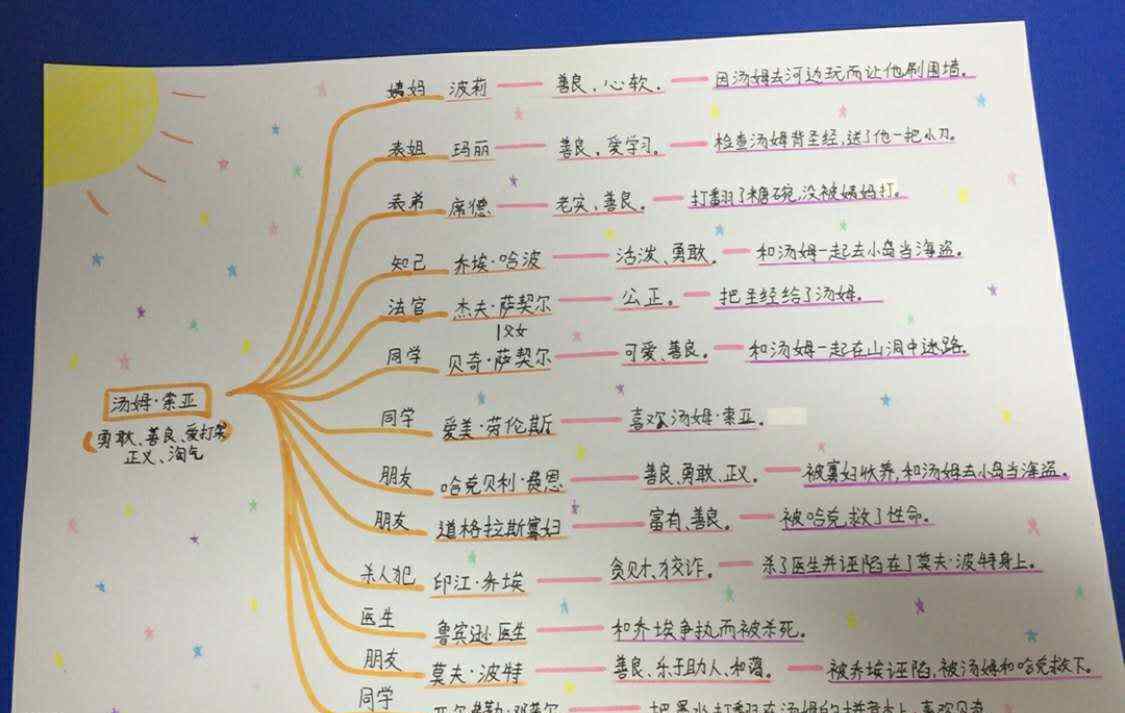 姨妈 波莉 善良、心软。 因汤姆去河边玩而让他刷围墙。
表姐 玛丽 善良、爱学习。 检查汤姆背圣经,送了他一把小刀。
表弟 席德 老实、善良。 打翻了糖碗,没被姨妈打。
知己 乔埃·哈波 活泼、勇敢。 和汤姆一起去小岛当海盗。
法官 杰夫·萨契尔 公正。 把圣经给了汤姆。
父女
同学 贝奇·萨契尔 可爱、善良。 和汤姆一起在山洞中迷路。
汤姆·索亚
勇敢、善良、爱打架
正义、淘气
同学 爱美·劳伦斯 喜欢汤姆·索亚。
朋友 哈克贝利·费恩 善良、勇敢、正义。 被寡妇收养,和汤姆去小岛当海盗。
朋友 道格拉斯寡妇 富有、善良。 被哈克救了性命。
杀人犯 印江·乔埃 贪财、狡诈。 杀了医生并诬陷在了莫夫·波特身上。
医生 鲁宾逊医生 和乔埃争执而被杀死。
朋友 莫夫·波特 善良、乐于助人、和蔼。 被乔埃诬陷,被汤姆和哈克救下。
同学 把墨水打翻在汤姆的拼音本上,喜欢贝奇